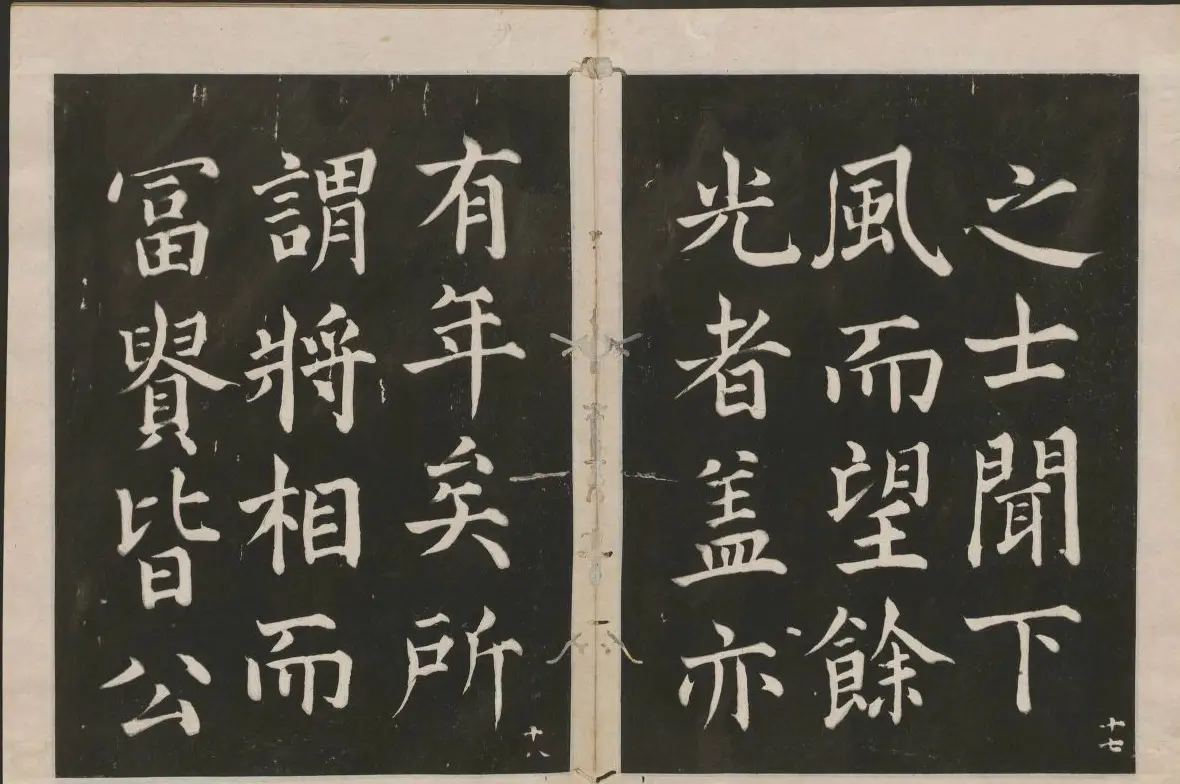 之士聞下
風而望餘
光者盖亦
十七
有年矣所
謂將相而
冨貴皆公
十八